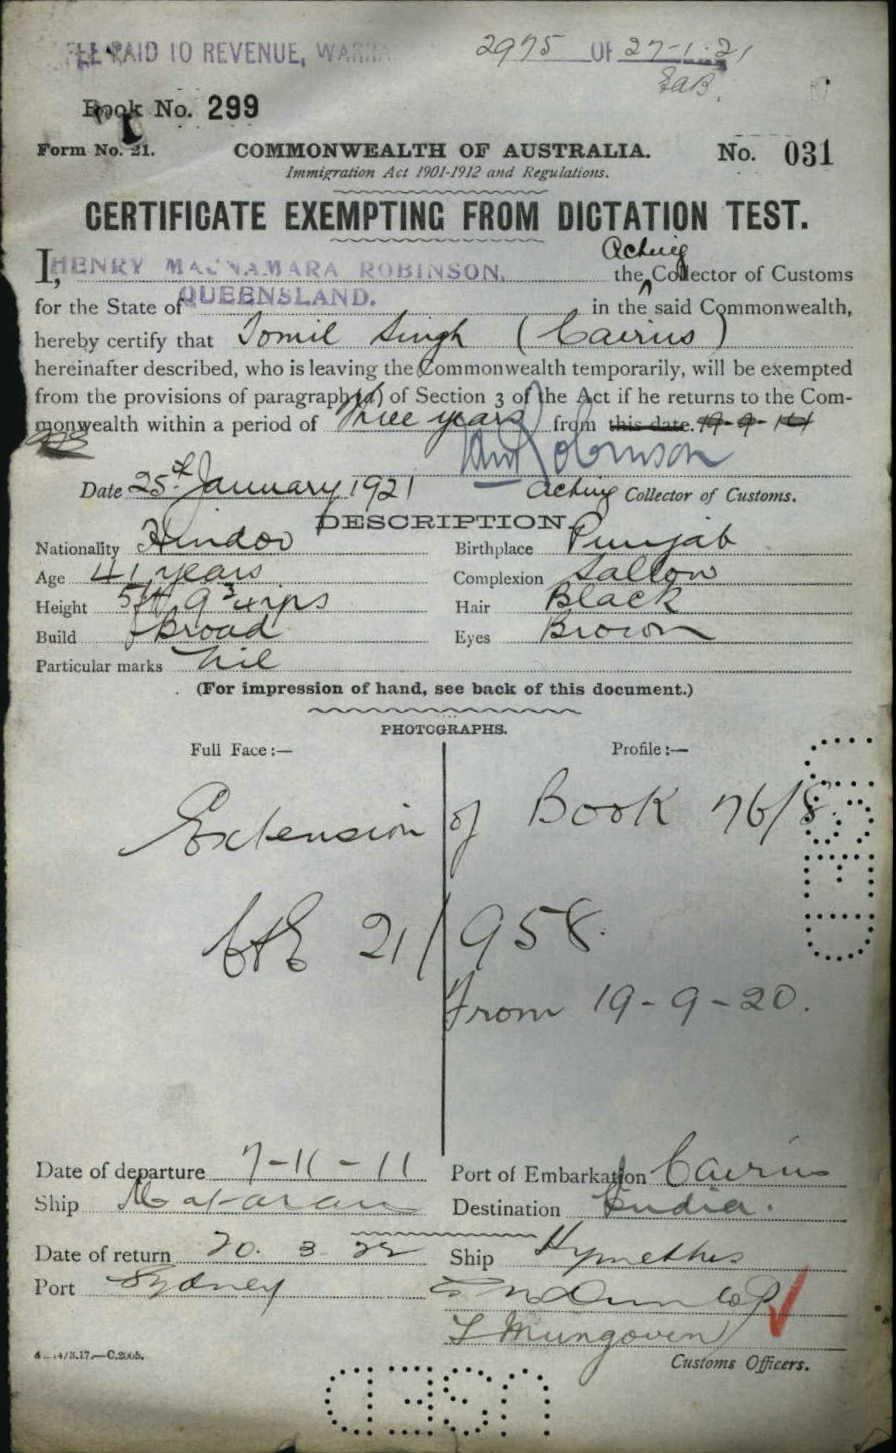 PAID TO REVENUE,
2975 OF 27-1-21
Book No. 299
Form No. 21. COMMONWEALTH OF AUSTRALIA. No. 031
Immigration Act 1901-1912 and Regulations.
CERTIFICATE EXEMPTING FROM DICTATION TEST.
Acting
I, HENRY MACNAMARA ROBINSON, the Collector of Customs
for the State of QUEENSLAND. in the said Commonwealth,
hereby certify that Tomil Singh (Cairns)
hereinafter described, who is leaving the Commonwealth temporarily, will be exempted
from the provisions of paragraph (a) of Section 3 of the Act if he returns to the Com-
monwealth within a period of three years from this date. 19-9-
Robinson
Date 25th January 1921 Acting Collector of Customs.
DESCRIPTION.
Nationality Hindoo Birthplace Punjab
Age 41 years Complexion Sallow
Height 5ft 9¾ ins Hair Black
Build Broad Eyes Brown
Particular marks Nil
(For impression of hand, see back of this document.)
PHOTOGRAPHS.
Full Face:— Profile:—
Extension of Book 76/8.
21/958.
From 19-9-20.
Date of departure 7-11-11 Port of Embarkation Cairns
Ship Mataram Destination India.
Date of return 20. 3 22 Ship Hymettus
Port Sydney Dunlop
Mungoven
Customs Officers.
C.2005.
USED
USED